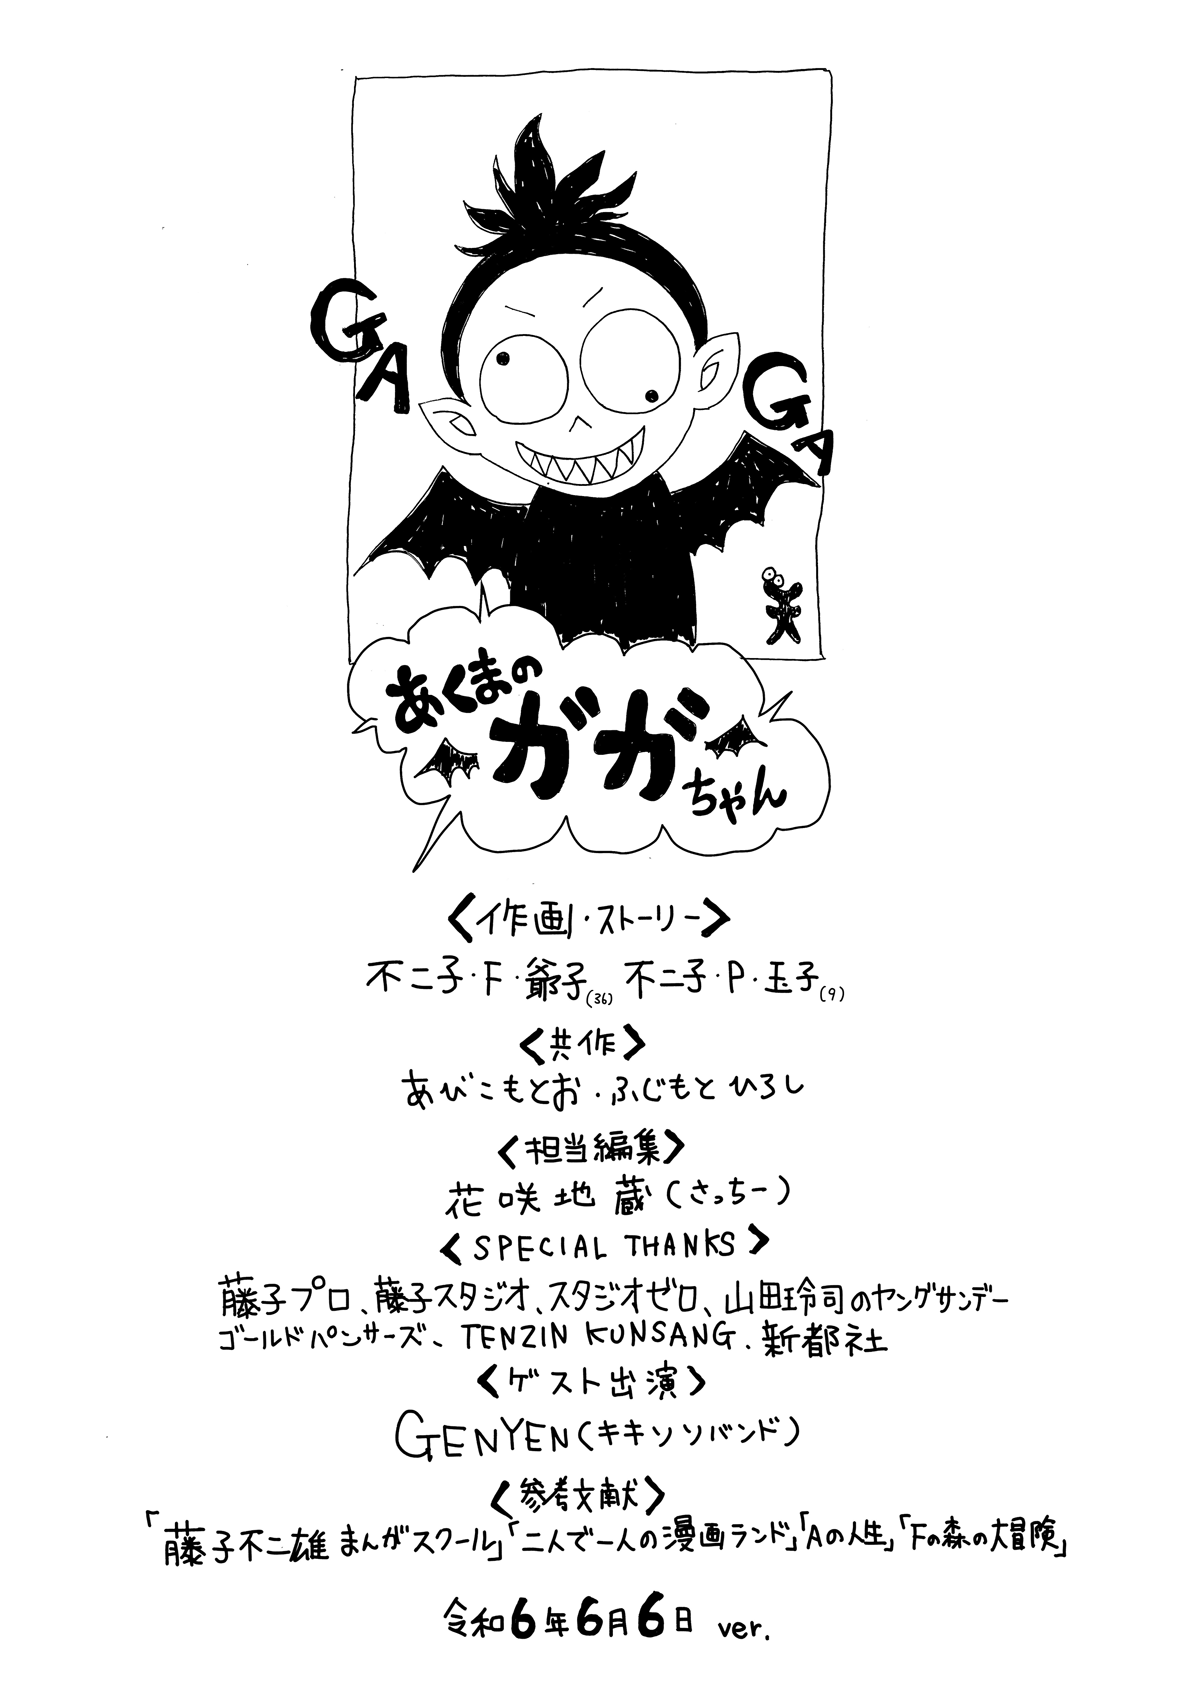 GA
GA
あくまの
ガガ
ちゃん
<作画・ストーリー>
不二子・F・爺子(36) 不二子・P・玉子(9)
<共作>
あびこもとお・ふじもとひろし
<担当編集>
花咲地蔵(さっちー)
<SPECIAL THANKS>
藤子プロ、藤子スタジオ、スタジオゼロ、山田玲司のヤングサンデー
ゴールドパンサーズ、TENZIN KUNSANG.新都社
<ゲスト出演>
GENYEN(キキソソバンド)
<参考文献>
「藤子不二雄まんがスクール」「二人で一人の漫画ランド」「Aの人生」「Fの森の大冒険」
令和6年6月6日 ver.